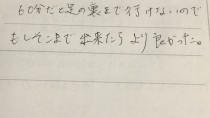 60分だと足の裏まで行けないので
もしそこまで出来たらより良かった。